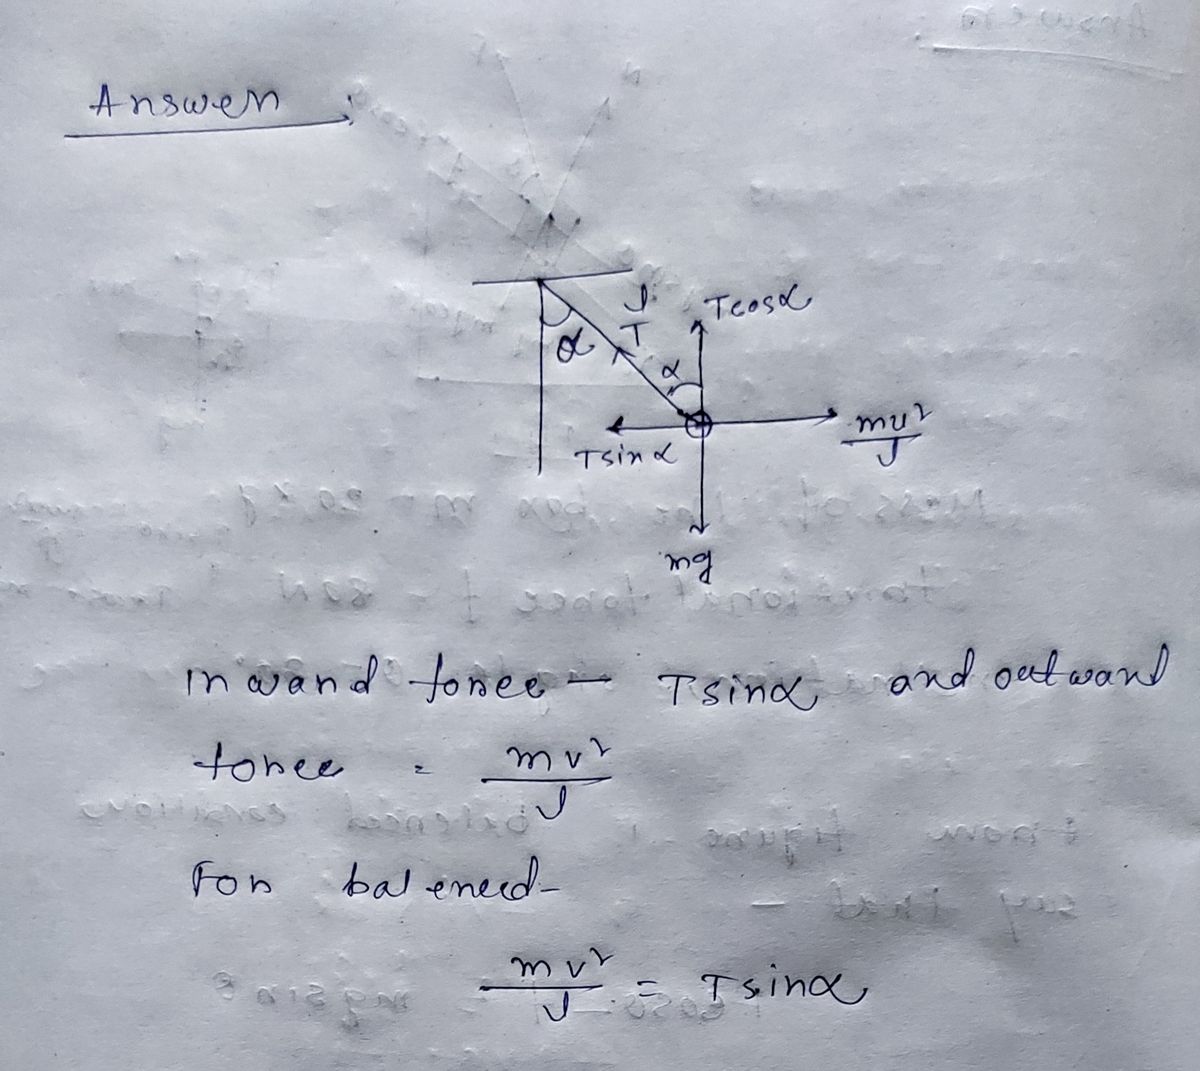 Answer :
l
T cosα
α
T
α
mv²
l
T sinα
mg
inward force — T sinα and outward
force = mv²
l
For balenced-
mv²
l = T sinα